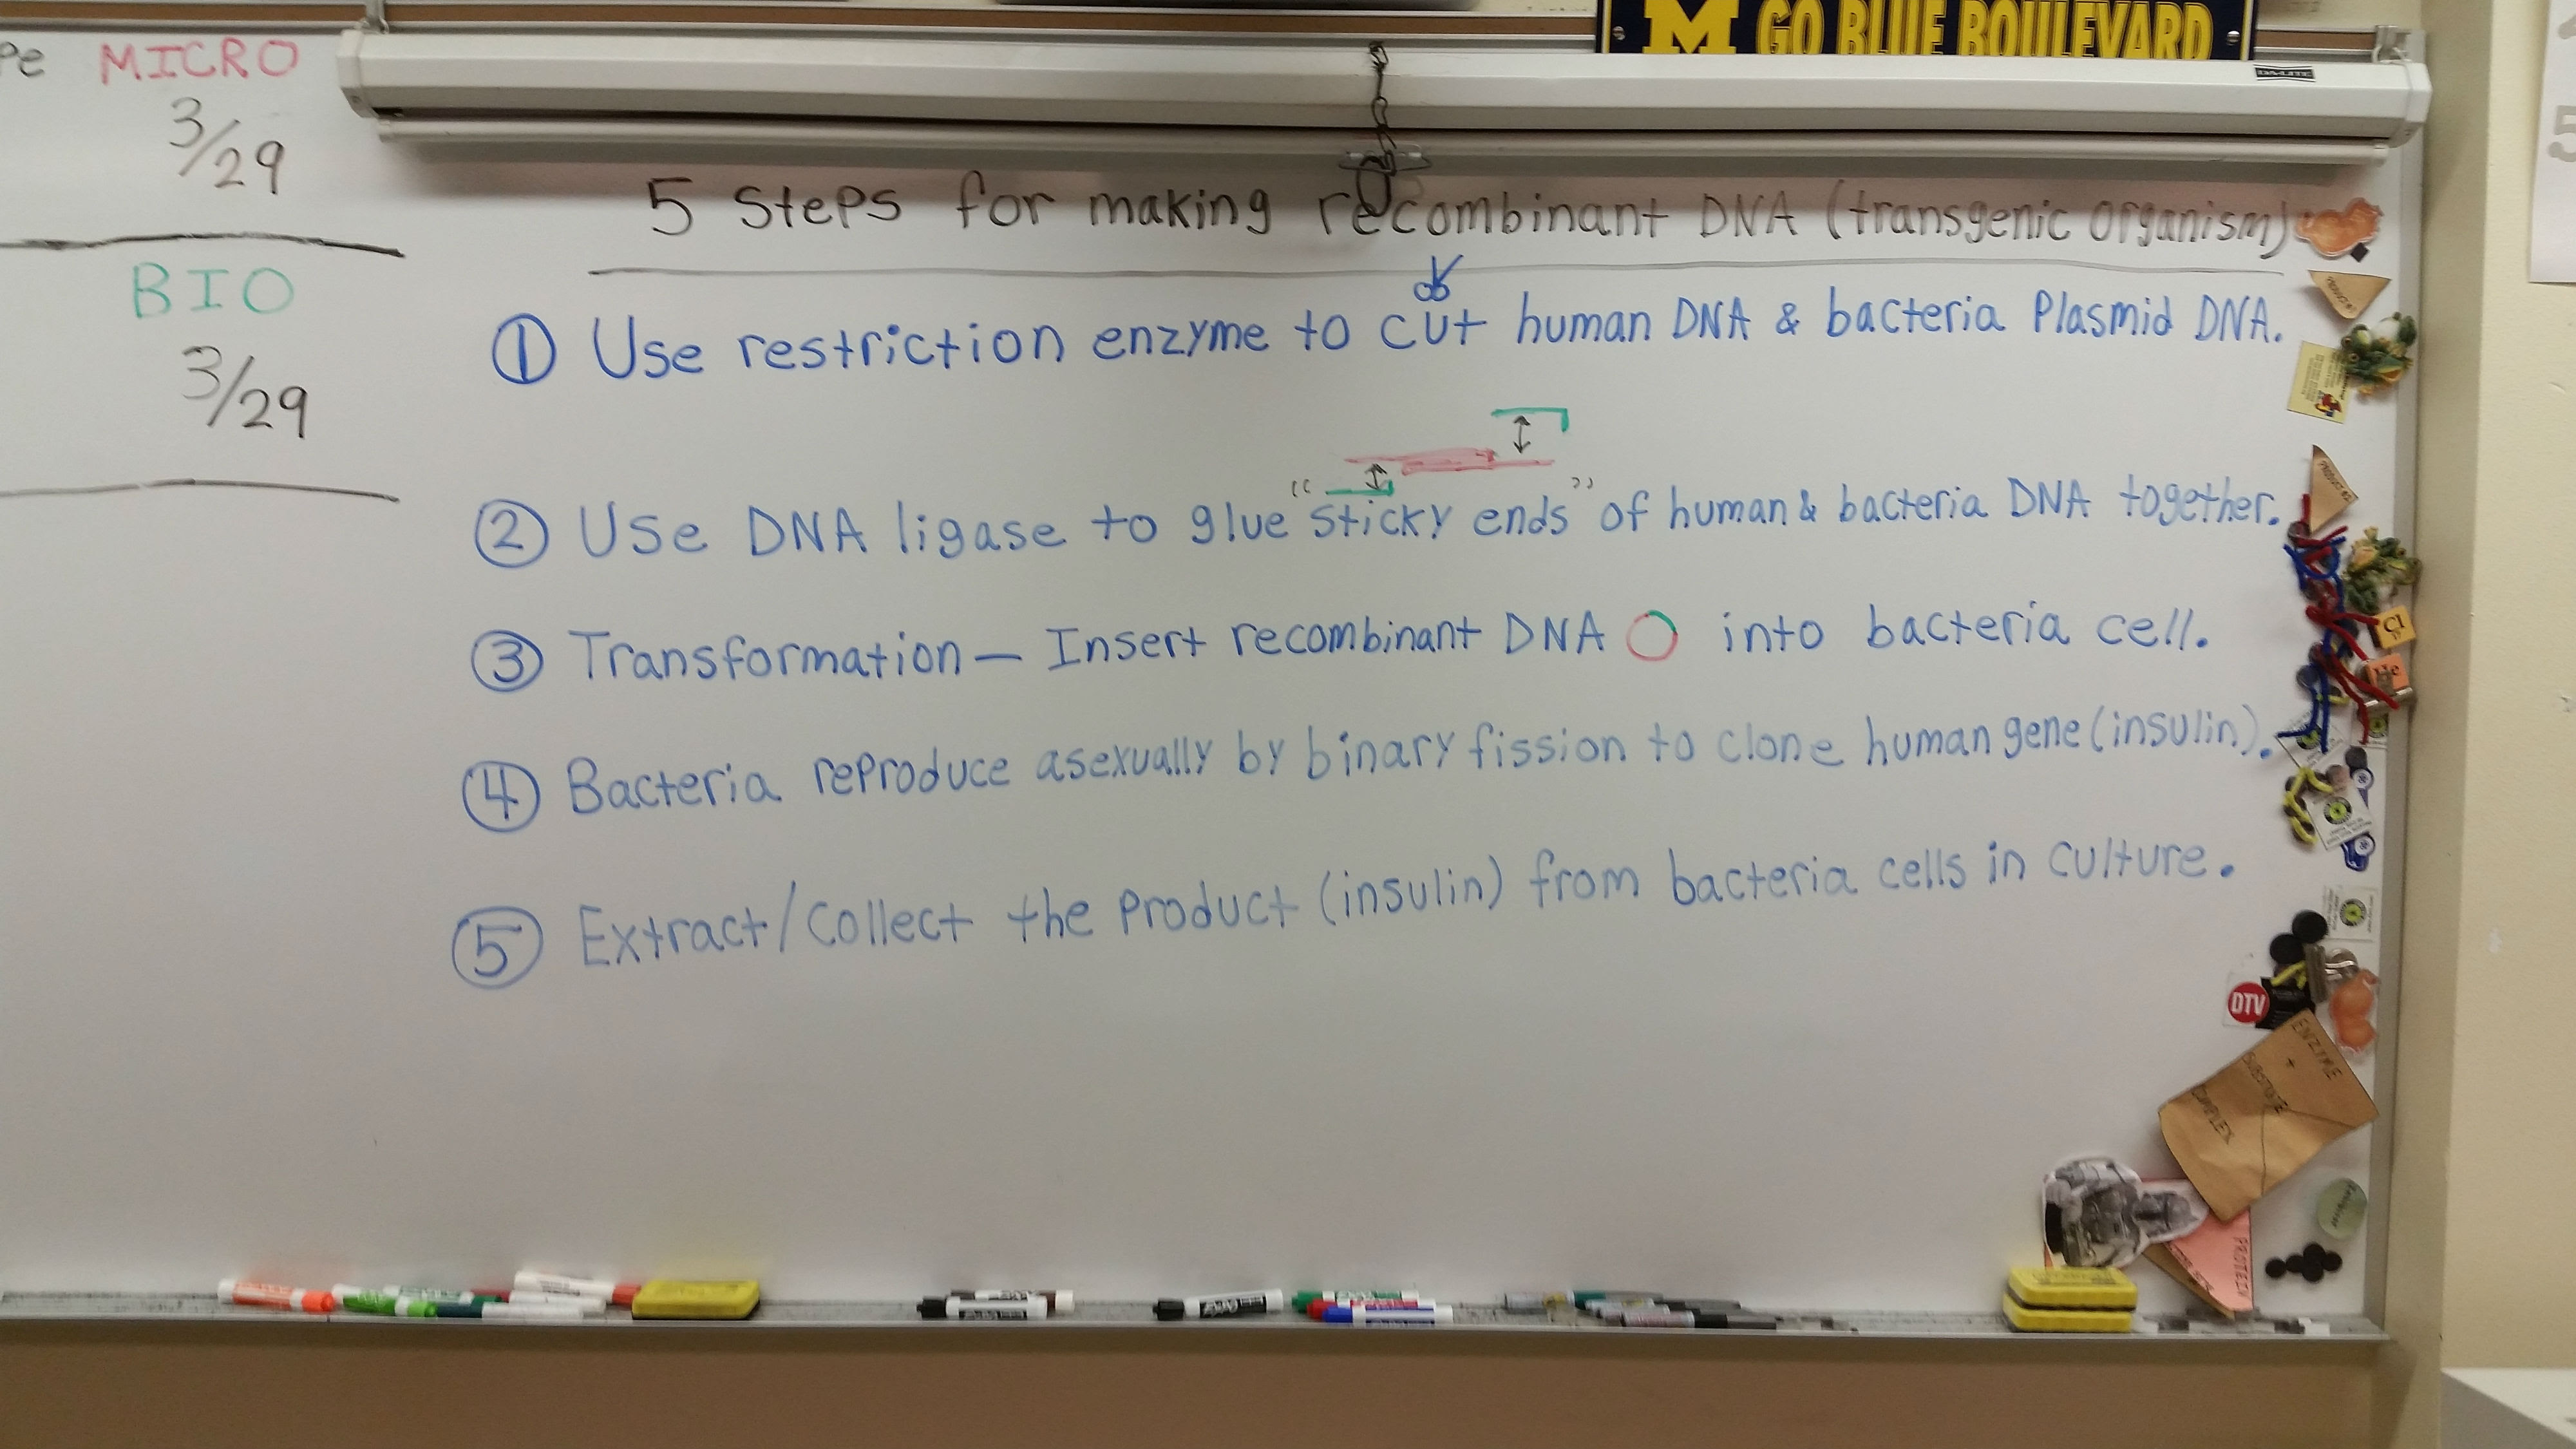 M GO BLUE BOULEVARD
DA-LITE
pe MICRO
3/29
BIO
3/29
5 Steps for making recombinant DNA (transgenic organism)
① Use restriction enzyme to cut human DNA & bacteria Plasmid DNA.
② Use DNA ligase to glue "sticky ends" of human & bacteria DNA together.
③ Transformation — Insert recombinant DNA into bacteria cell.
④ Bacteria reproduce asexually by binary fission to clone human gene (insulin).
⑤ Extract/Collect the product (insulin) from bacteria cells in culture.
Cl
17
He
DTV
ENZYME
+
SUBSTRATE
COMPLEX
PROTEIN
5